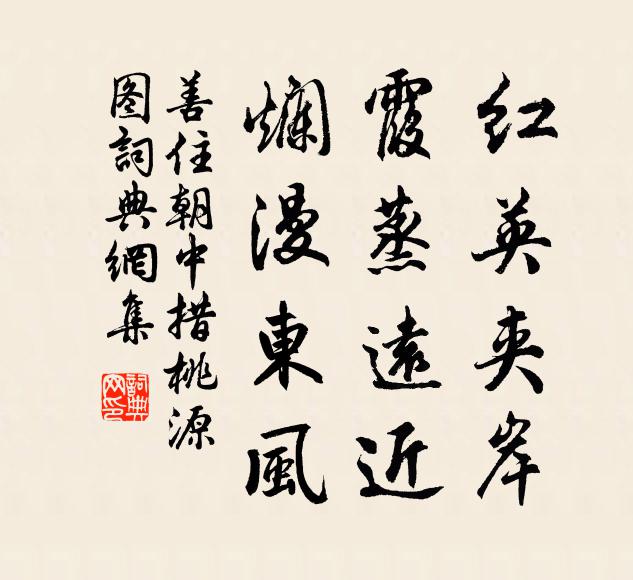 红英夹岸
霞蒸遠近
爛漫東風
善住朝中措桃源
图詞典網集
詞典网印